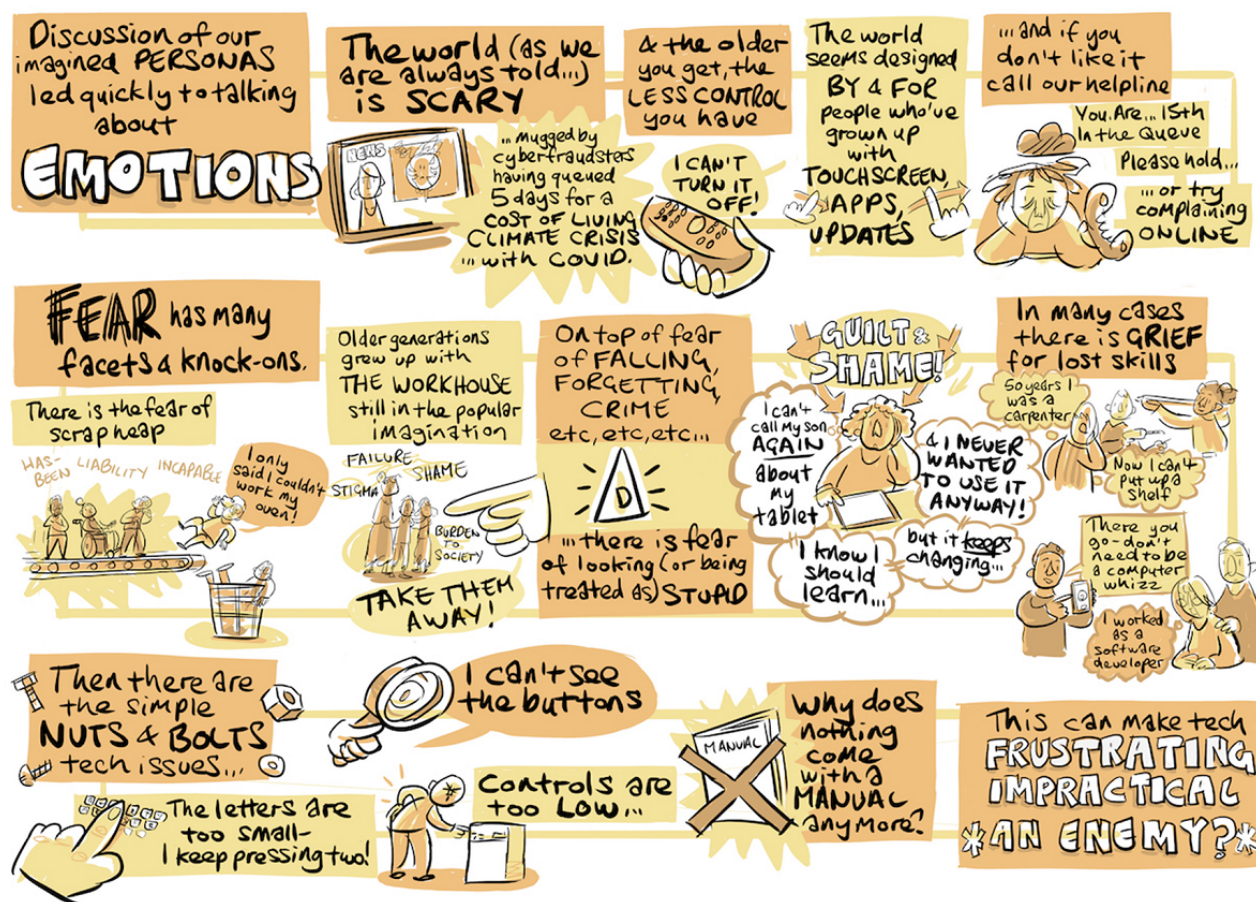 Discussion of our
imagined PERSONAS
led quickly to talking
about
EMOTIONS
The world (as we
are always told...)
is SCARY
NEWS
... mugged by
cyberfraudsters
having queued
5 days for a
COST OF LIVING
CLIMATE CRISIS
... with COVID.
& the older
you get, the
LESS CONTROL
you have
I CAN'T
TURN IT
OFF!
The world
seems designed
BY & FOR
people who've
grown up
with
TOUCHSCREEN,
APPS,
UPDATES
...and if you
don't like it
call our helpline
You Are... 15th
In the Queue
Please hold...
... or try
complaining
ONLINE
FEAR has many
facets & knock-ons.
There is the fear of
scrap heap
HAS-
BEEN
LIABILITY
INCAPABLE
I only
said I couldn't
work my
oven!
Older generations
grew up with
THE WORKHOUSE
still in the popular
imagination
FAILURE
STIGMA
SHAME
BURDEN
TO
SOCIETY
TAKE THEM
AWAY!
On top of fear
of FALLING,
FORGETTING,
CRIME
etc, etc, etc...
D
... there is fear
of looking (or being
treated as) STUPID
GUILT &
SHAME!
I can't
call my son
AGAIN
about
my
tablet
& I NEVER
WANTED
TO USE IT
ANYWAY!
I know I
should
learn...
but it keeps
changing...
In many cases
there is GRIEF
for lost skills
50 years I
was a
carpenter
Now I can't
put up a
shelf
There you
go - don't
need to be
a computer
whizz
I worked
as a
software
developer
Then there are
the simple
NUTS & BOLTS
tech issues...
The letters are
too small-
I keep pressing two!
I can't see
the buttons
Controls are
too LOW...
MANUAL
Why does
nothing
come
with a
MANUAL
any more?
This can make tech
FRUSTRATING
IMPRACTICAL
*AN ENEMY?*